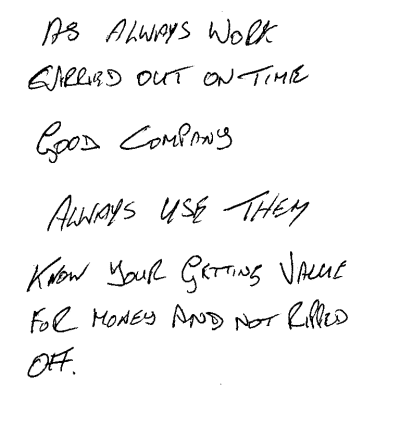 AS ALWAYS WORK
CARRIED OUT ON TIME
GOOD COMPANY
ALWAYS USE THEM
KNOW YOUR GETTING VALUE
FOR MONEY AND NOT RIPPED
OFF.